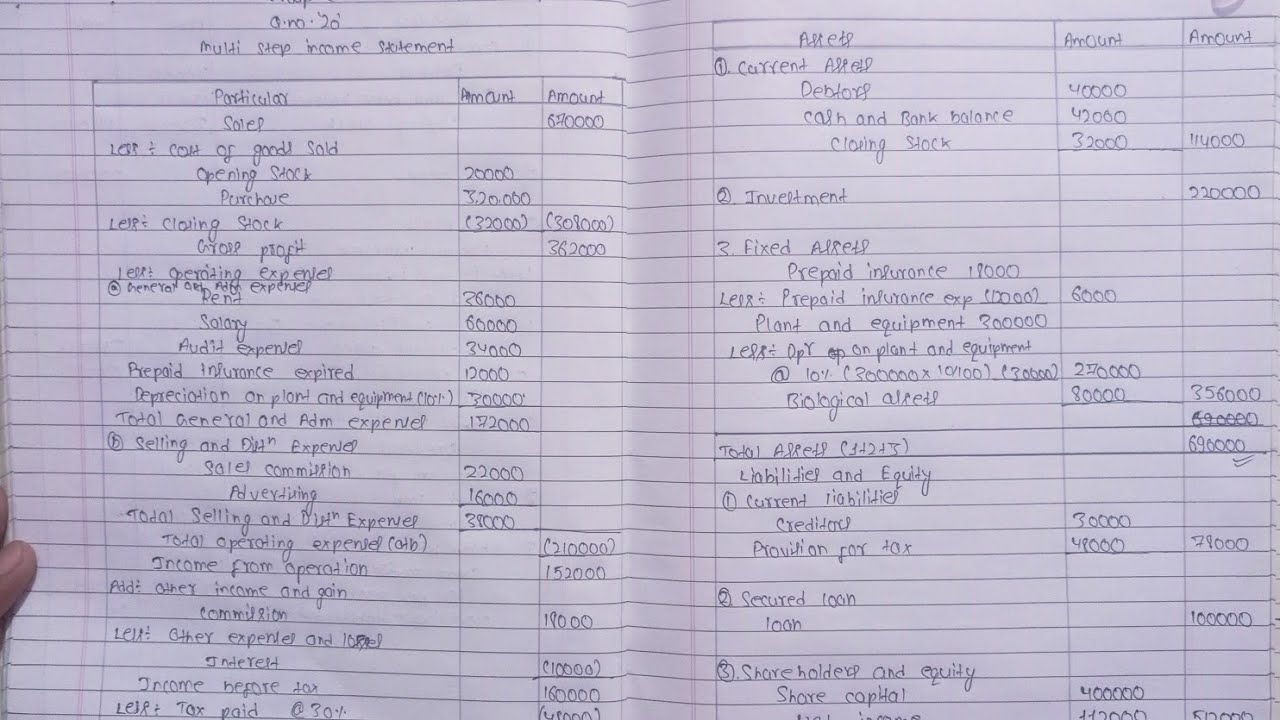 Q.no.20
Multi step income statement
Particular Amount Amount
Sales 670000
Less ÷ cost of goods sold
Opening Stock 20000
Purchase 320000
Less÷ Closing Stock (32000) (308000)
Gross profit 362000
Less÷ operating expenses
ⓐ General and Adm expenses
Rent 36000
Salary 60000
Audit expenses 34000
Prepaid Insurance expired 12000
Depreciation on plant and equipment (10%) 30000
Total General and Adm expenses 172000
ⓑ Selling and Distn Expenses
Sales commission 22000
Advertizing 16000
Total Selling and Distn Expenses 38000
Total operating expenses (a+b) (210000)
Income from operation 152000
Add÷ other income and gain
Commission 18000
Less÷ other expenses and losses
Interest (10000)
Income before tax 160000
Less÷ Tax paid @30% (48000)
Assets Amount Amount
①. Current Assets
Debtors 40000
Cash and Bank balance 42000
Closing Stock 32000 114000
② Investment 220000
3. Fixed Assets
Prepaid insurance 18000
Less÷ Prepaid insurance exp (12000) 6000
Plant and equipment 300000
Less÷ Dpr on plant and equipment
@ 10% (300000x10/100) (30000) 270000
Biological assets 80000 356000
690000
Total Assets (1+2+3) 690000
Liabilities and Equity
① Current liabilities
Creditors 30000
Provision for tax 48000 78000
② Secured loan
loan 100000
③. Shareholders and equity
Share capital 400000
income 112000 512000